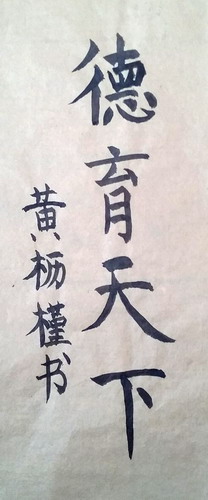 德育天下
黄枥槿书